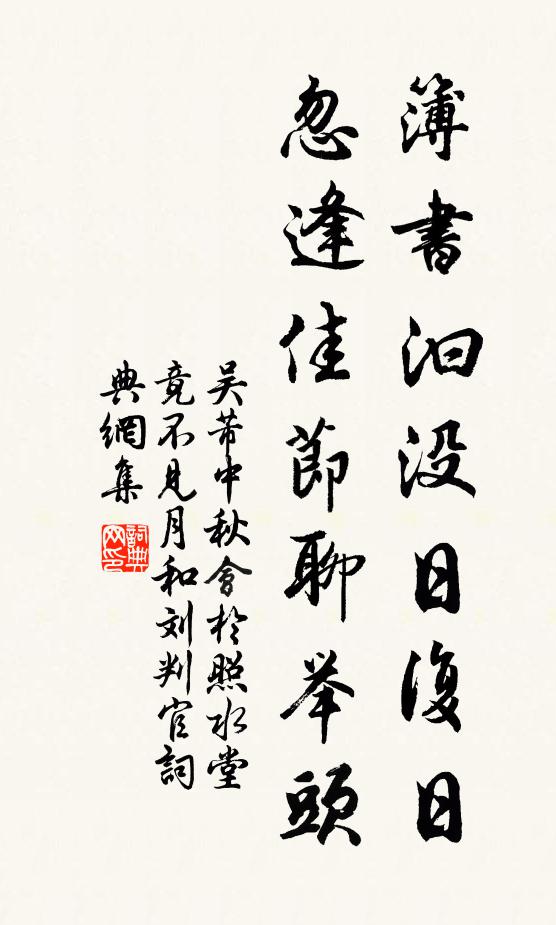 簿書汩没日復日
忽逢佳節聊举頭
吴芾中秋會於照水堂
竟不見月和刘判官詞
典網集
詞典网印